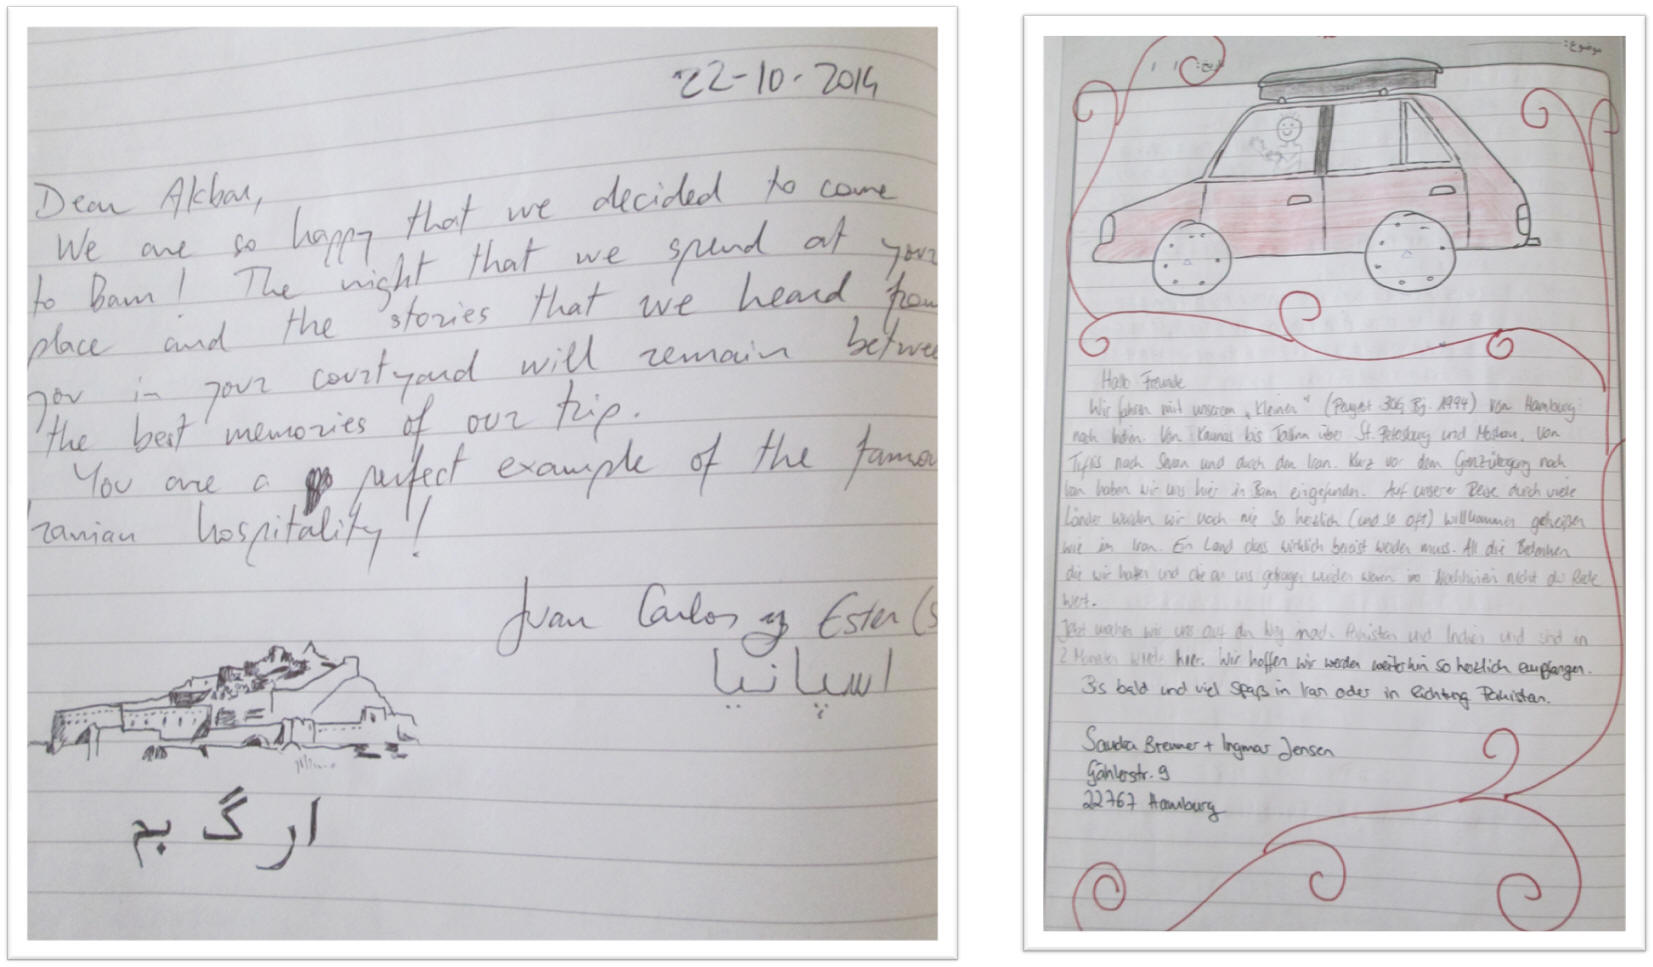 22-10-2014
Dear Akbar,
We are so happy that we decided to come
to Bam! The night that we spend at your
place and the stories that we heard from
you in your courtyard will remain betwee
the best memories of our trip.
You are a perfect example of the famou
Iranian hospitality!
Juan Carlos y Ester (S
اسپانیا
ارگ بم
موضوع:
تاریخ: / /
Hallo Freunde
Wir fahren mit unserem "Kleinen" (Peugeot 306 Bj. 1994) von Hamburg
nach Indien. Von Kaunas bis Tallinn über St. Petersburg und Moskau, von
Tiflis nach Sevan und durch den Iran. Kurz vor dem Grenzübergang nach
haben wir uns hier in Bam eingefunden. Auf unserer Reise durch viele
Länder wurden wir noch nie so herzlich (und so oft) willkommen geheißen
wie im Iran. Ein Land dass wirklich bereist werden muss. All die Bedenken
die wir hatten und die an uns getragen wurden waren im Nachhinein nicht der Rede
wert.
Jetzt machen wir uns auf den Weg nach Pakistan und Indien und sind in
2 Monaten wieder hier. Wir hoffen wir werden weiterhin so herzlich empfangen.
Bis bald und viel Spaß in Iran oder in Richtung Pakistan.
Sandra Brenner + Ingmar Jensen
Gählerstr. 9
22767 Hamburg